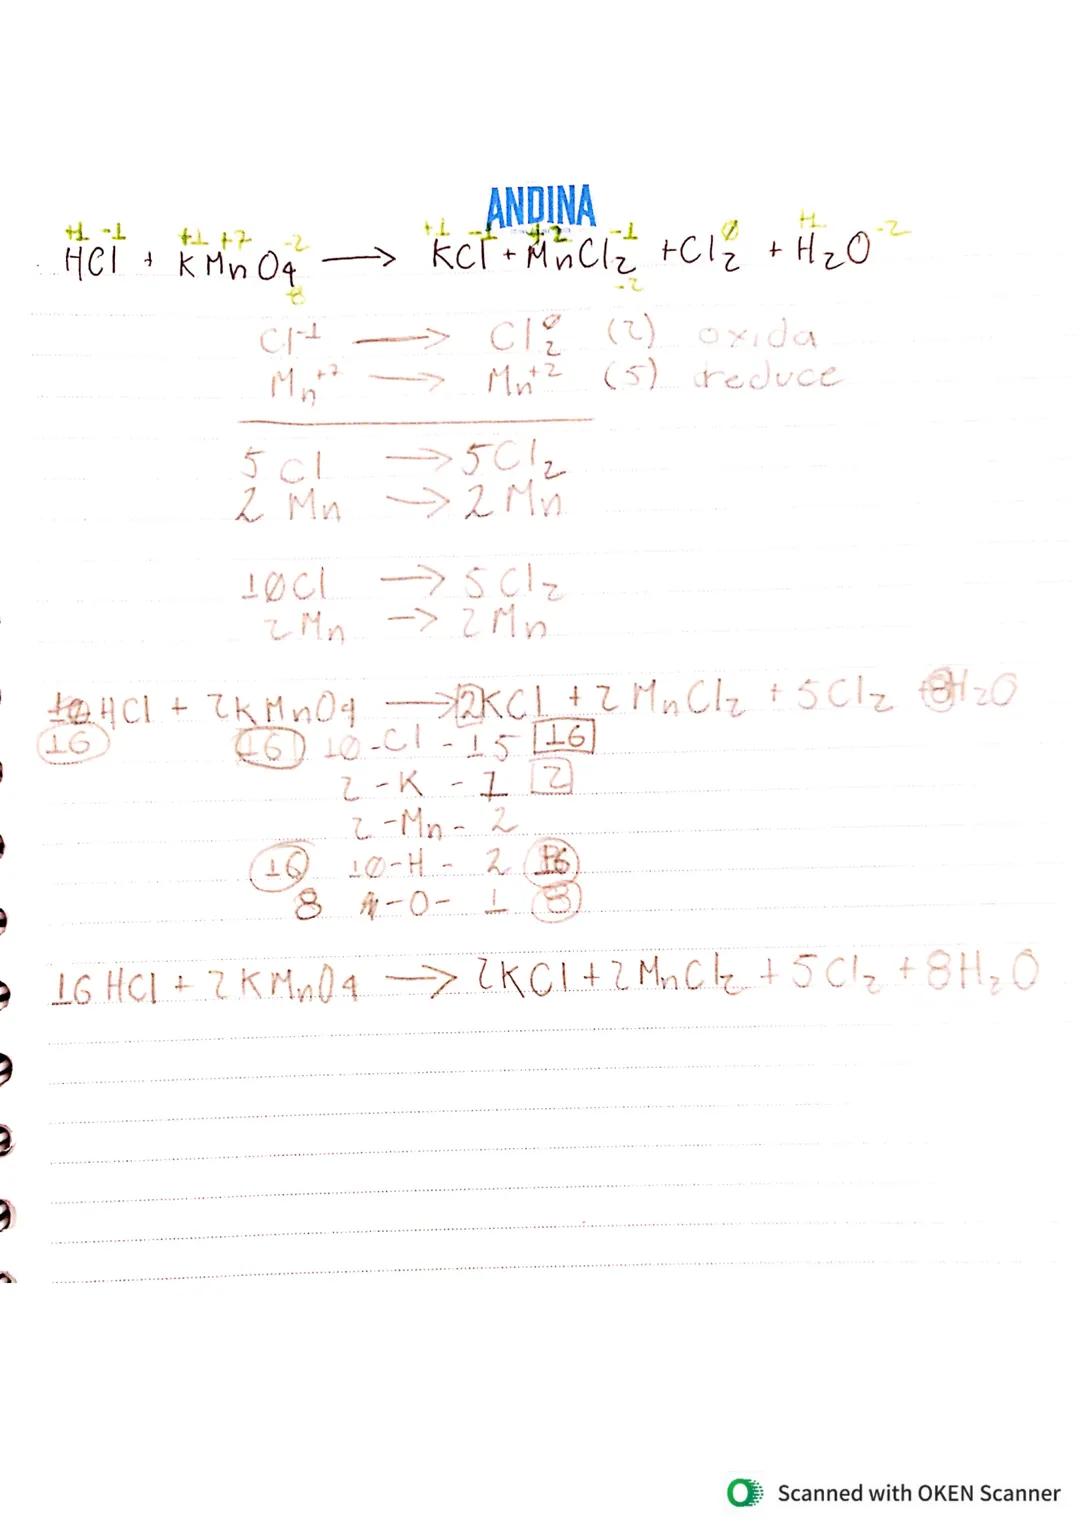 ANDINA
+1 -1 +1 +7 -2 +1 -1 +2 -1 0 +1 -2
HCl + KMnO4 → KCl + MnCl2 + Cl2 + H2O
-8 -2
Cl-1 → Cl2 0 (2) oxida
Mn+7 → Mn+2 (5) reduce
5 Cl → 5Cl2
2 Mn → 2 Mn
10Cl → 5Cl2
2Mn → 2Mn
10 HCl + 2KMnO4 → 2KCl + 2MnCl2 + 5Cl2 + 8H2O
16 16 10-Cl-15 16
2-K-1 2
2-Mn-2
16 10-H-2 16
8 -O-1 8
16HCl + 2KMnO4 → 2KCl + 2MnCl2 + 5Cl2 + 8H2O
Scanned with OKEN Scanner